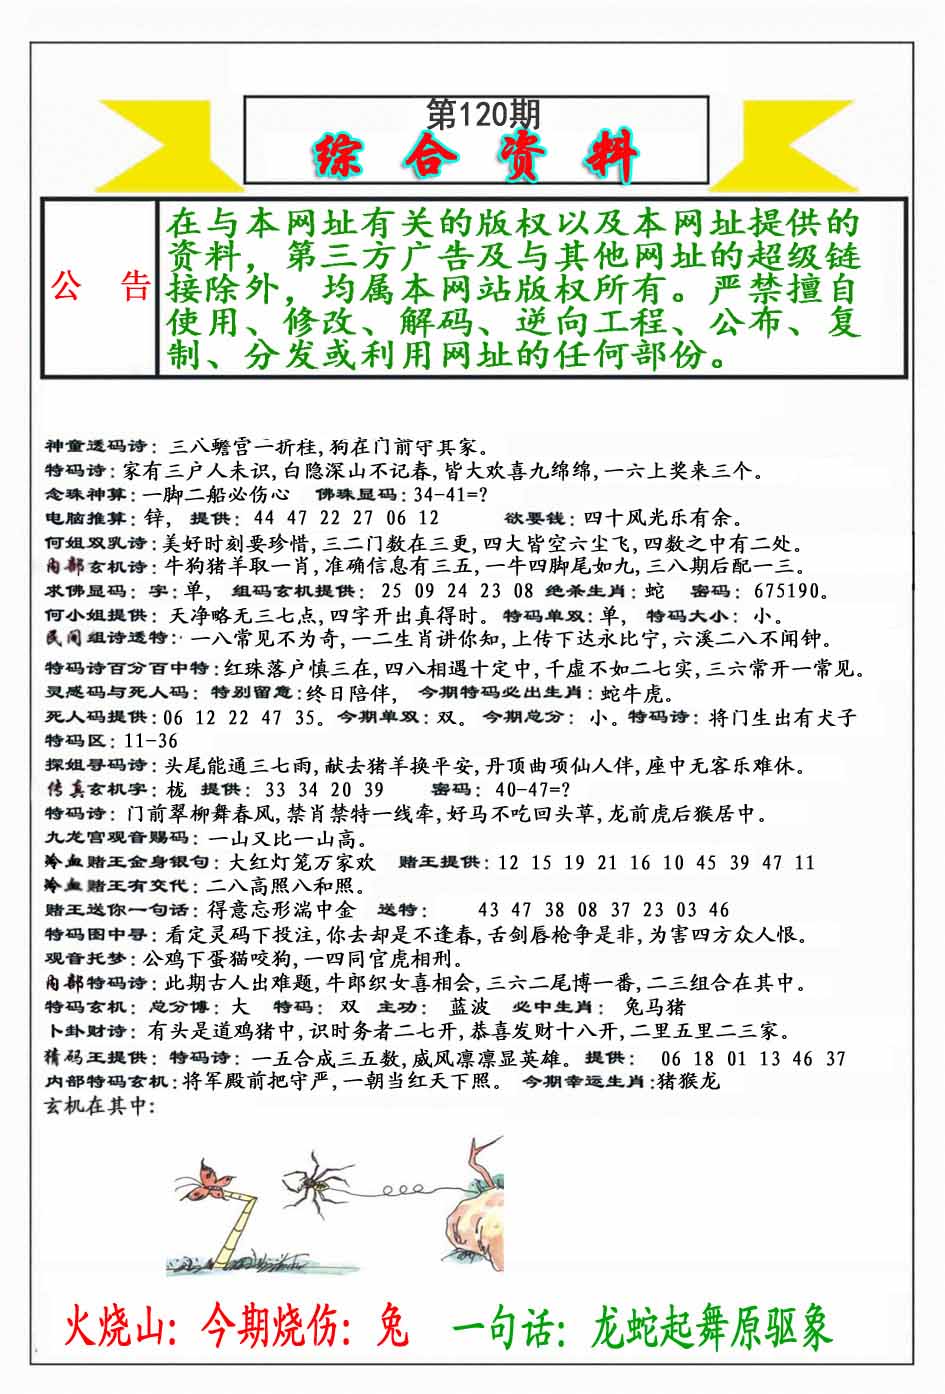 第120期
综合资料
公 告
在与本网址有关的版权以及本网址提供的
资料，第三方广告及与其他网址的超级链
接除外，均属本网站版权所有。严禁擅自
使用、修改、解码、逆向工程、公布、复
制、分发或利用网址的任何部份。
神童透码诗：三八蟾宫一折桂,狗在门前守其家。
特码诗:家有三户人未识,白隐深山不记春,皆大欢喜九绵绵,一六上奖来三个。
念珠神算:一脚二船必伤心 佛珠显码:34-41=?
电脑推算:锌, 提供: 44 47 22 27 06 12 欲要钱:四十风光乐有余。
何姐双乳诗:美好时刻要珍惜,三二门数在三更,四大皆空六尘飞,四数之中有二处。
内部玄机诗:牛狗猪羊取一肖,准确信息有三五,一牛四脚尾如九,三八期后配一三。
求佛显码: 字:单, 组码玄机提供: 25 09 24 23 08 绝杀生肖: 蛇 密码: 675190。
何小姐提供: 天净略无三七点,四字开出真得时。特码单双:单, 特码大小: 小。
民间组诗透特: 一八常见不为奇,一二生肖讲你知,上传下达永比宁,六溪二八不闻钟。
特码诗百分百中特:红珠落户慎三在,四八相遇十定中,千虚不如二七实,三六常开一常见。
灵感码与死人码: 特别留意:终日陪伴, 今期特码必出生肖: 蛇牛虎。
死人码提供:06 12 22 47 35。今期单双:双。今期总分: 小。特码诗: 将门生出有犬子
特码区: 11-36
探姐寻码诗:头尾能通三七雨,献去猪羊换平安,丹顶曲项仙人伴,座中无客乐难休。
传真玄机字: 栊 提供: 33 34 20 39 密码: 40-47=?
特码诗: 门前翠柳舞春风,禁肖禁特一线牵,好马不吃回头草,龙前虎后猴居中。
九龙宫观音赐码: 一山又比一山高。
冷血赌王金身银句: 大红灯笼万家欢 赌王提供:12 15 19 21 16 10 45 39 47 11
冷血赌王有交代: 二八高照八和照。
赌王送你一句话: 得意忘形湍中金 送特: 43 47 38 08 37 23 03 46
特码图中寻: 看定灵码下投注,你去却是不逢春,舌剑唇枪争是非,为害四方众人恨。
观音托梦: 公鸡下蛋猫咬狗,一四同官虎相刑。
内部特码诗: 此期古人出难题,牛郎织女喜相会,三六二尾博一番,二三组合在其中。
特码玄机: 总分博: 大 特码: 双 主功: 蓝波 必中生肖: 兔马猪
卜卦财诗: 有头是道鸡猪中,识时务者二七开,恭喜发财十八开,二里五里二三家。
猜码王提供: 特码诗: 一五合成三五数,威风凛凛显英雄。提供: 06 18 01 13 46 37
内部特码玄机:将军殿前把守严,一朝当红天下照。 今期幸运生肖:猪猴龙
玄机在其中:
火烧山: 今期烧伤: 兔 一句话: 龙蛇起舞原驱象